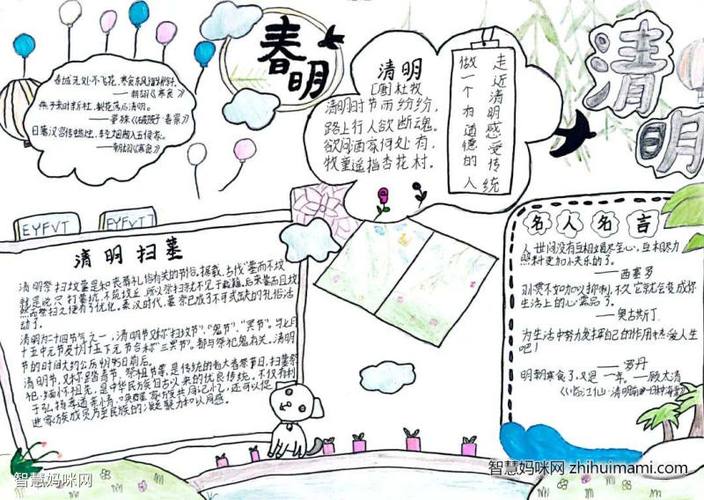 春明
清明
春城无处不飞花,寒食东风御柳斜。
——韩翃《寒食》
燕子来时新社,梨花落后清明。
——晏殊《破阵子·春景》
日暮汉宫传蜡烛,轻烟散入五侯家。
——韩翃《寒食》
清明
[唐]杜牧
清明时节雨纷纷,
路上行人欲断魂。
欲问酒家何处有,
牧童遥指杏花村。
走近清明感受传统
做一个有道德的人
EYFVT
EYFVT
清明扫墓
清明祭扫坟茔是和丧葬礼俗有关的节俗。据载,古代"墓而不坟
就是说只打墓坑,不筑坟丘,所以祭扫就不见于载籍。后来墓而且坟
祭扫之便有了优化。秦汉时代,墓祭已成了不可或缺的礼俗活
动了。
清明为二十四节气之一,清明节又称"扫坟节"、"鬼节"、"冥节"。与七月
十五中元节及十月十五下元节合称"三冥节",都与祭祀鬼有关。清明
节的时间大约公历4月5日前后。
清明节,又称踏青节、祭祖节等,是传统的重大春祭节日,扫墓祭
祀、缅怀祖先,是中华民族自古以来的优良传统。不仅有利
于弘扬孝道亲情、唤醒家族共同记忆,还可以促
进家族成员乃至民族的凝聚力和认同感。
名人名言
人世间没有
——西塞罗
久它就会变成你
生活上的必需品了。
——奥古斯丁
为生活中努力发挥自己的作用,热爱人生
吧!
——罗丹
明朝寒食了,又是一年。——顾太清
智慧妈咪网
智慧妈咪网 zhihuimami.com